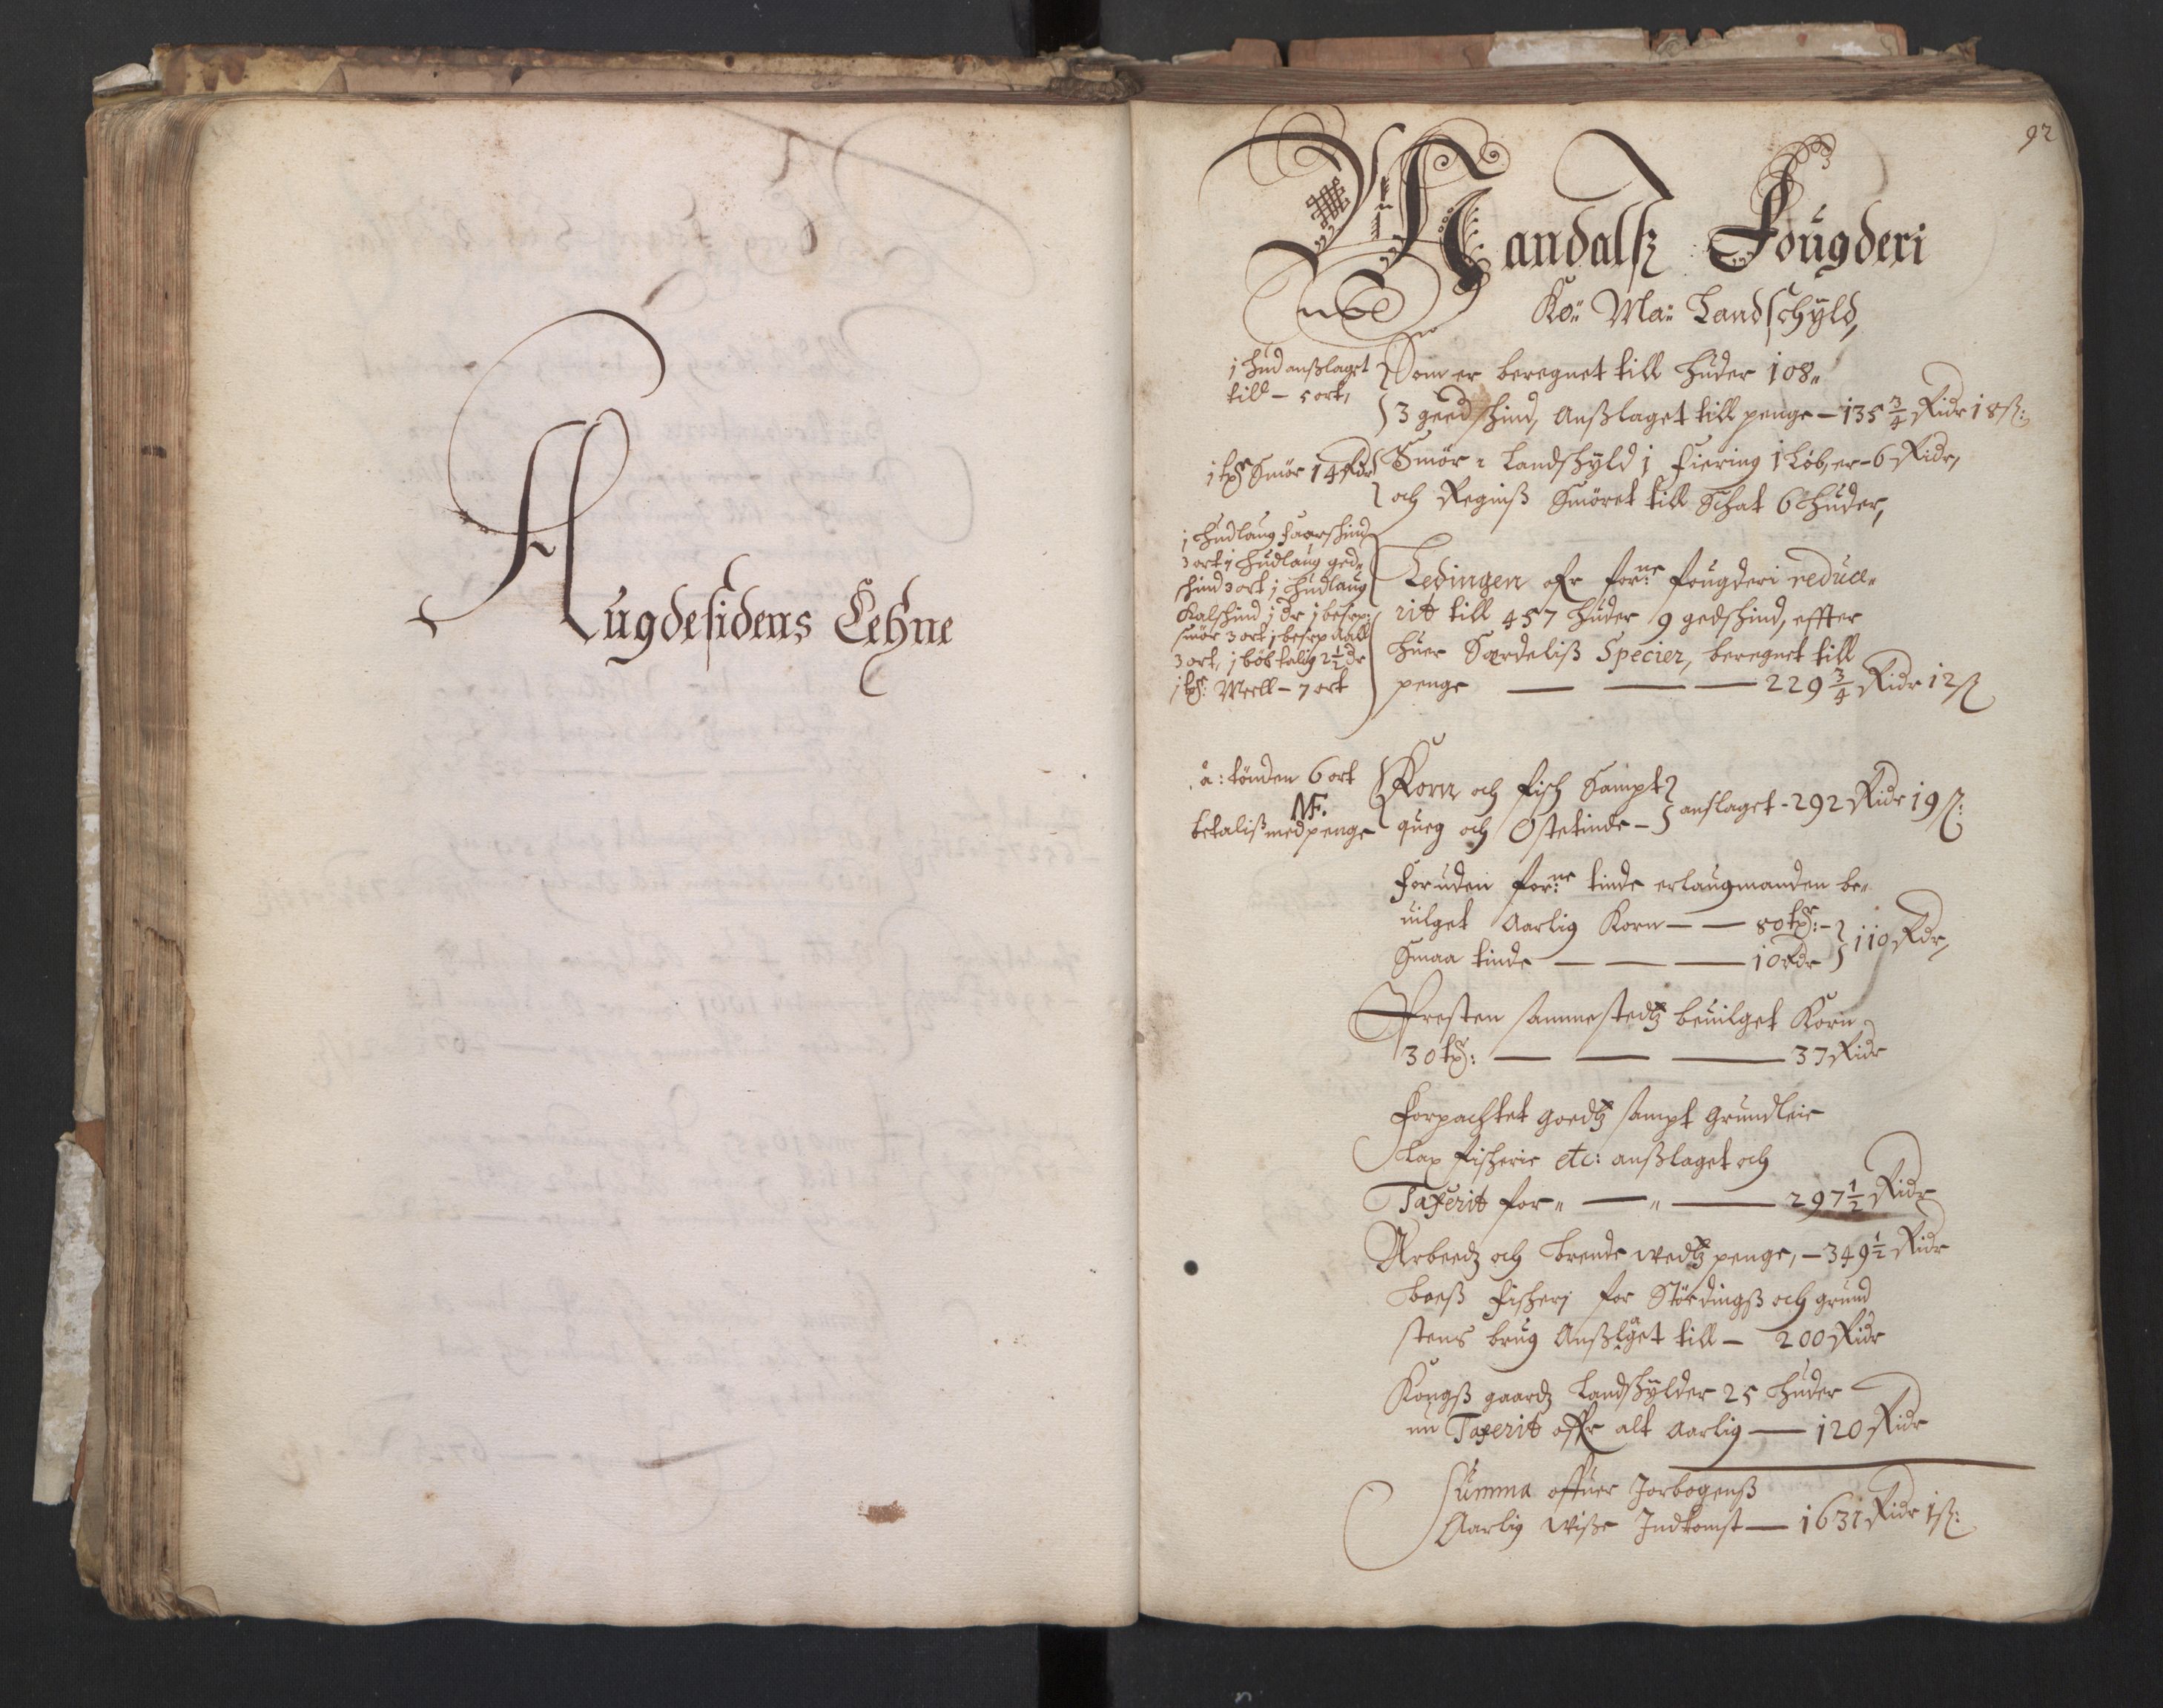 Augdesidens Lehne
92
Mandalß Fougderi
Ko: Ma: Landschyld,
j hud anßlaget
till – 5 ort,
Som er beregnet till huder 108„
3 geed schind, Anßlaget till penge – 135 3/4 Ridr 18 ß:
j tp Smör 14 Rdr
Smör Landschyld j Fiering 1 Løb, er – 6 Ridr,
och Regniß Smöret till Schat 6 huder,
j hudlaug faarschind
3 ort j hudlaug ged„
schind 3 ort j hudlaug
Kalschind j dr j besrp:
smör 3 ort j besrp
3 ort, j bøs talig 2 1/2 dr
j tp: Meell – 7 ort
Ledingen afr forne fougderi reduce„
rit till 457 huder 9 gedschind, effter
huer Særdeliß Specier, beregnet till
penge — — — 229 3/4 Ridr 12 ß
à: tönden 6 ort
NE.
betaliß med penge
Korn och fisch Sampt
queg och Ostetinde –
anslaget – 292 Ridr 19 ß:
Foruden forne tinde er laugmanden be„
uilget Aarlig Korn — — 80 tp: –
Smaa tinde — — — 10 Rdr
110 Rdr,
Presten sammestedtz beuilget Korn
30 tp: — — — 37 Ridr
Forpachtet goedtz sampt Grundleie
Lax fischerie etc: anßlaget och
Taxerit for„ — „ — 297 1/2 Ridr
Arbeedz och brende wedtz penge, – 349 1/2 Ridr
Boeß fischerj for Stördingß och grund
stens brug Anßlaget till – 200 Ridr
Kongß gaardz Landschylder 25 huder
nu Taxerit offr alt Aarlig — 120 Ridr
Summa offuer Jorbogenß
Aarlig wiße Indkomst — 1631 Ridr 1 ß: